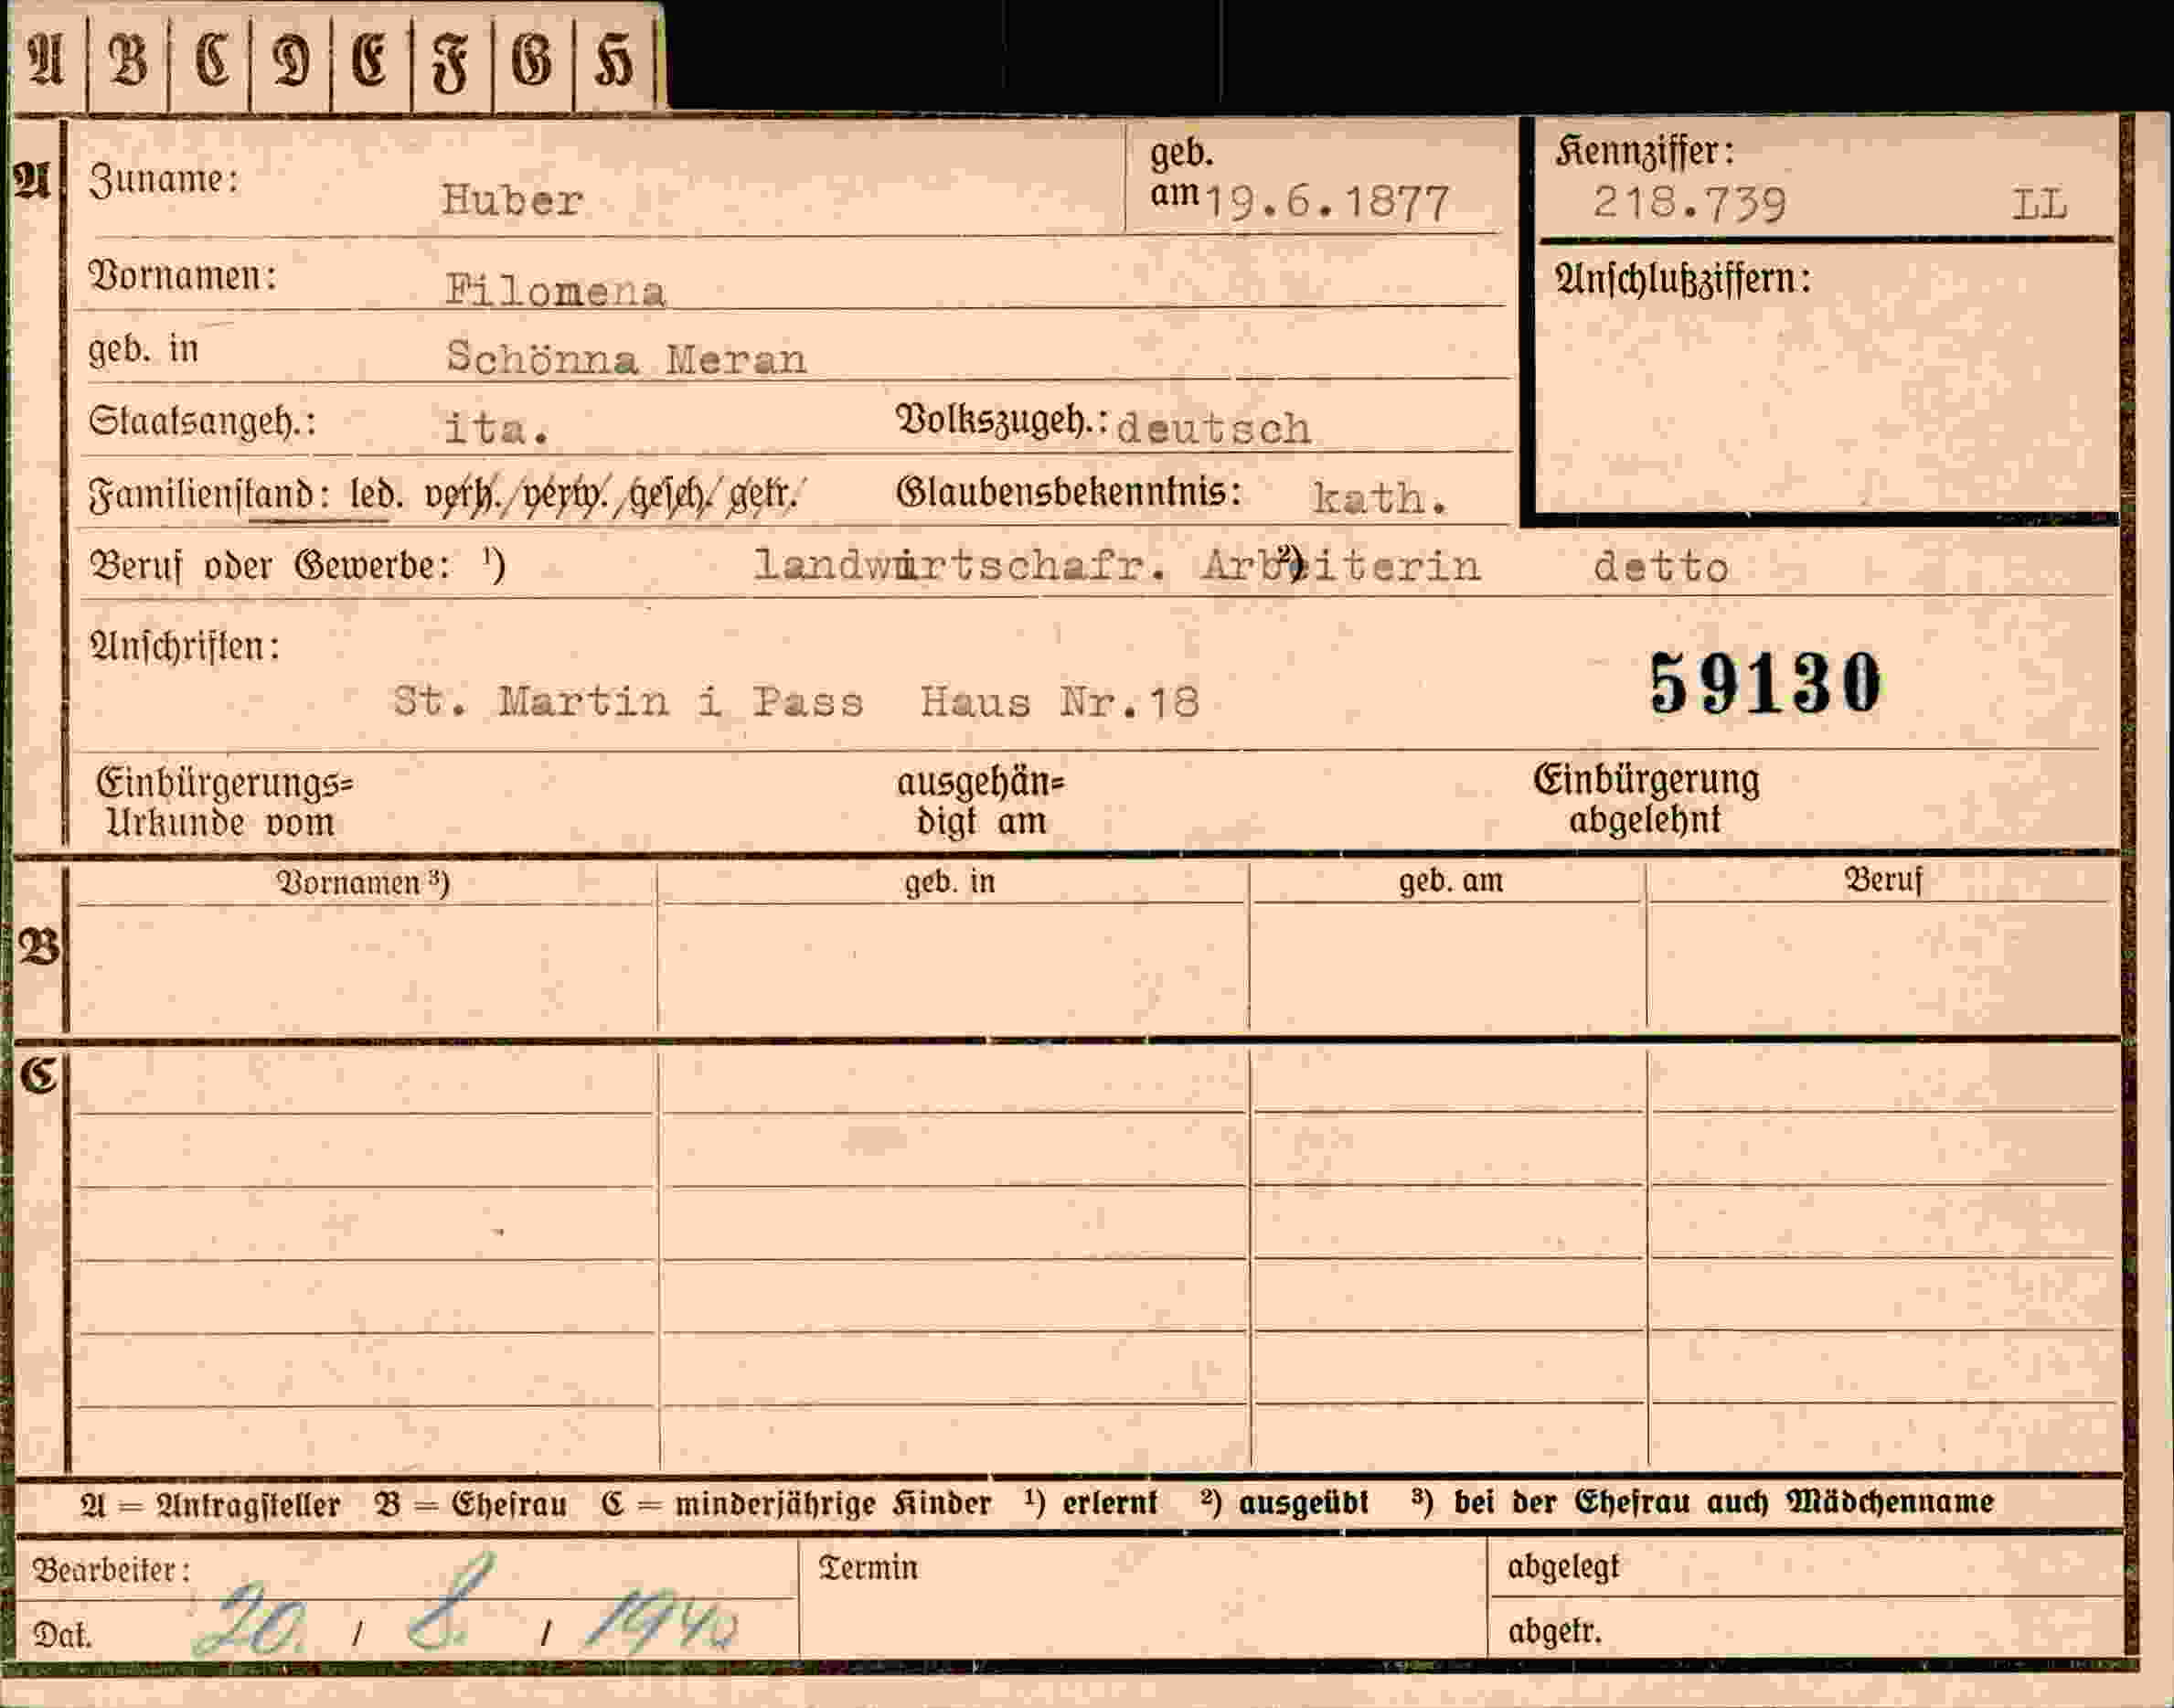 A B C D E F G H
A Zuname: Huber geb. am 19.6.1877 Kennziffer: 218.739 LL
Vornamen: Filomena Anschlußziffern:
geb. in Schönna Meran
Staatsangeh.: ita. Volkszugeh.: deutsch
Familienstand: led. verh./verw./gesch./getr. Glaubensbekenntnis: kath.
Beruf oder Gewerbe: ¹) landwirtschafr. Arbeiterin ²) detto
Anschriften:
59130
St. Martin i Pass Haus Nr.18
Einbürgerungs= ausgehän= Einbürgerung
Urkunde vom digt am abgelehnt
Vornamen ³) geb. in geb. am Beruf
B
C
A = Antragsteller B = Ehefrau C = minderjährige Kinder ¹) erlernt ²) ausgeübt ³) bei der Ehefrau auch Mädchenname
Bearbeiter: Termin abgelegt
Dat. 20. / 8. / 1940 abgetr.